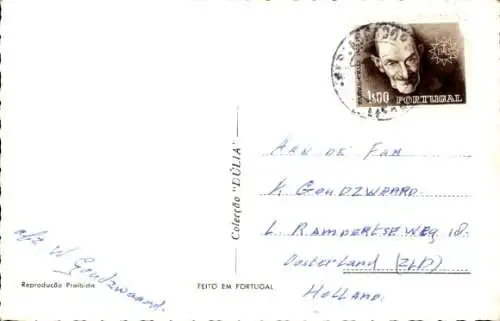 1$00 PORTUGAL
Aan de Fam
K Goudzwaard
L. Rampertseweg 18.
Oosterland (ZLD)
Holland.
Colecção "DÚLIA"
afz W Goudzwaard.
Reprodução Proibida
FEITO EM PORTUGAL